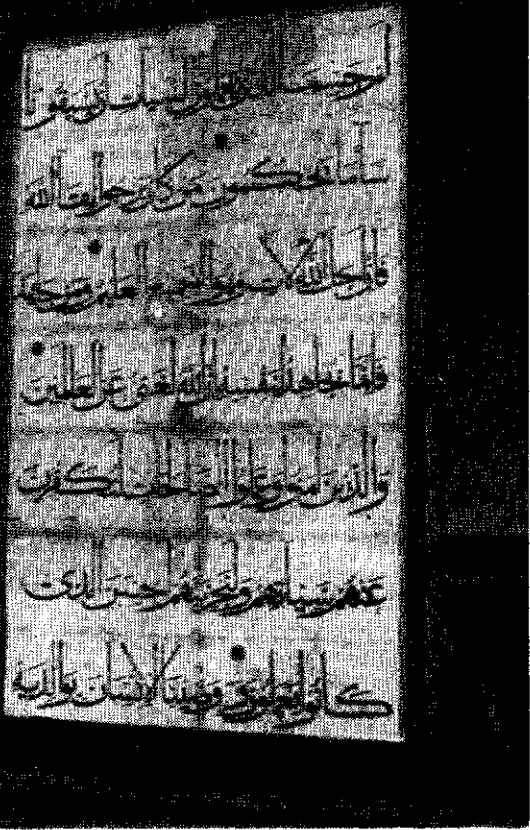 أم حسب الذين يعملون السيات أن يسبقونا
ساء ما يحكمون من كان يرجوا لقاء الله
فإن أجل الله لات وهو السميع العليم ومن جاهد
فإنما يجاهد لنفسه إن الله لغني عن العلمين
والذين امنوا وعملوا الصالحات لنكفرن
عنهم سيئاتهم ولنجزينهم أحسن الذي
كانوا يعملون ووصينا الانسان بوالديه